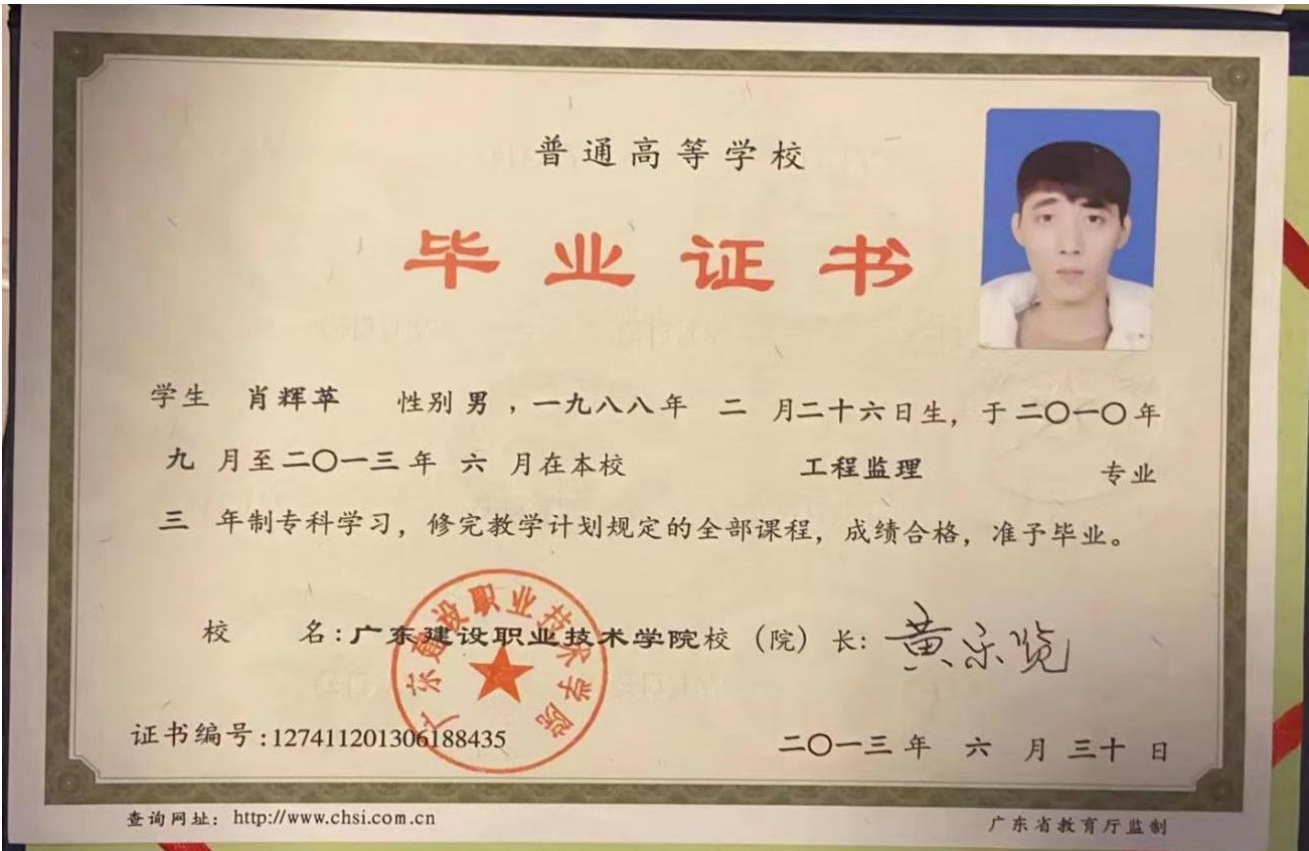 普通高等学校
毕业证书
学生 肖辉苹 性别 男 ，一九八八年 二 月二十六日生，于二〇一〇年
九 月至二〇一三年 六 月在本校 工程监理 专业
三 年制专科学习，修完教学计划规定的全部课程，成绩合格，准予毕业。
校 名：广东建设职业技术学院校（院）长：黄乐览
广东建设职业技术学院
证书编号：127411201306188435
二〇一三年 六 月 三十 日
查询网址：http://www.chsi.com.cn
广东省教育厅监制